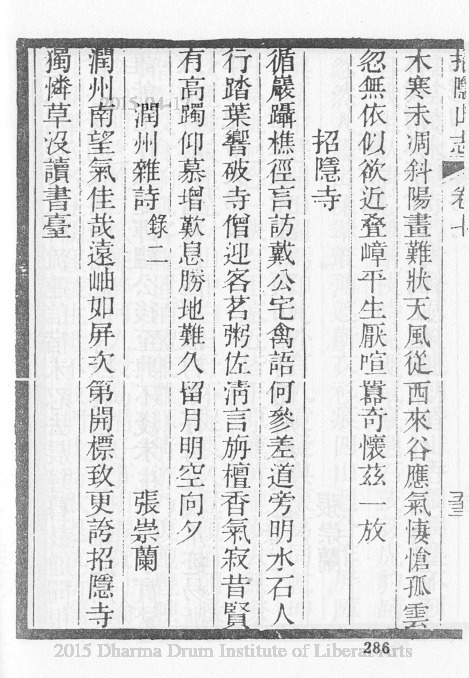 招隱山志 卷十
木寒未凋斜陽畫難狀天風從西來谷應氣悽愴孤雲
忽無依似欲近疊嶂平生厭喧囂奇懷茲一放
招隱寺
循巖躡樵徑言訪戴公宅禽語何參差道旁明水石人
行踏葉響破寺僧迎客茗粥佐清言旃檀香氣寂昔賢
有高躅仰慕增歎息勝地難久留月明空向夕
潤州雜詩 錄二 張崇蘭
潤州南望氣佳哉遠岫如屏次第開標致更誇招隱寺
獨憐草沒讀書臺
286
2015 Dharma Drum Institute of Liberal Arts